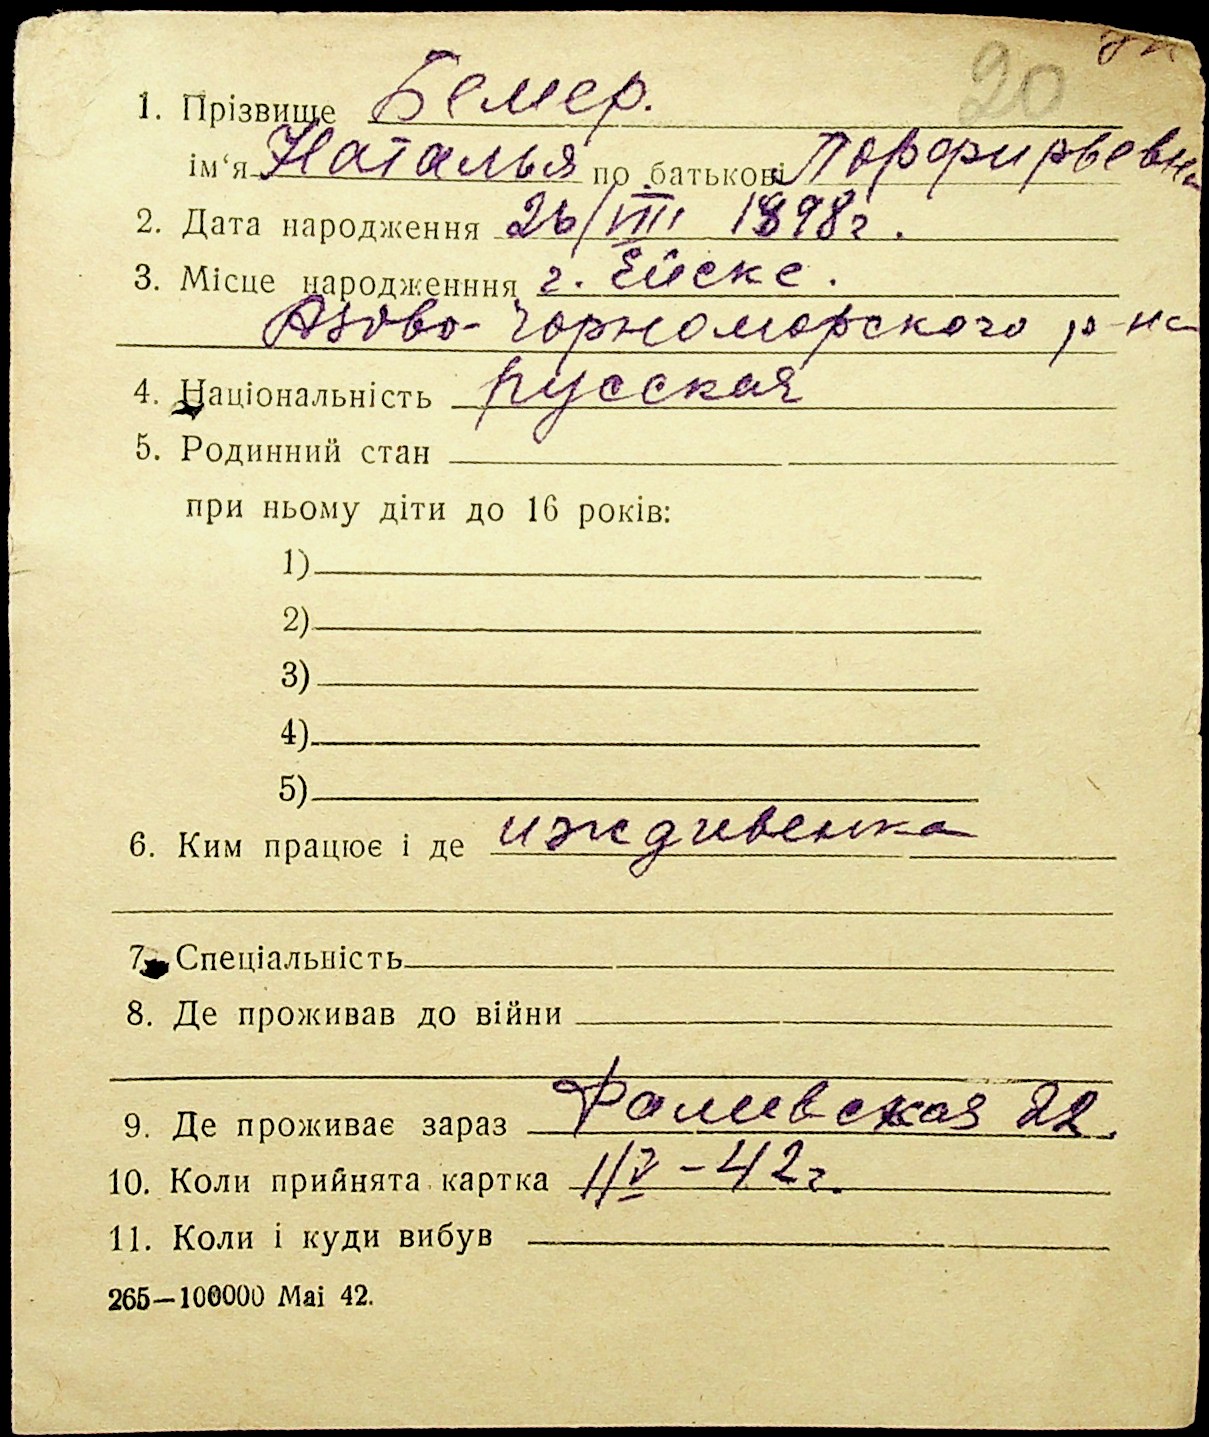 20
1. Прізвище Бемер.
ім‘я Наталья по батькові Порфирьевна
2. Дата народження 26/VIII 1898г.
3. Місце народженння г. Ейске.
Азово-Чорноморского р-на
4. Національність русская
5. Родинний стан
при ньому діти до 16 років:
1)
2)
3)
4)
5)
6. Ким працює і де иждивенка
7. Спеціальність
8. Де проживав до війни
9. Де проживає зараз Фалиевская 22.
10. Коли прийнята картка 1/V-42г.
11. Коли і куди вибув
265—100000 Маі 42.